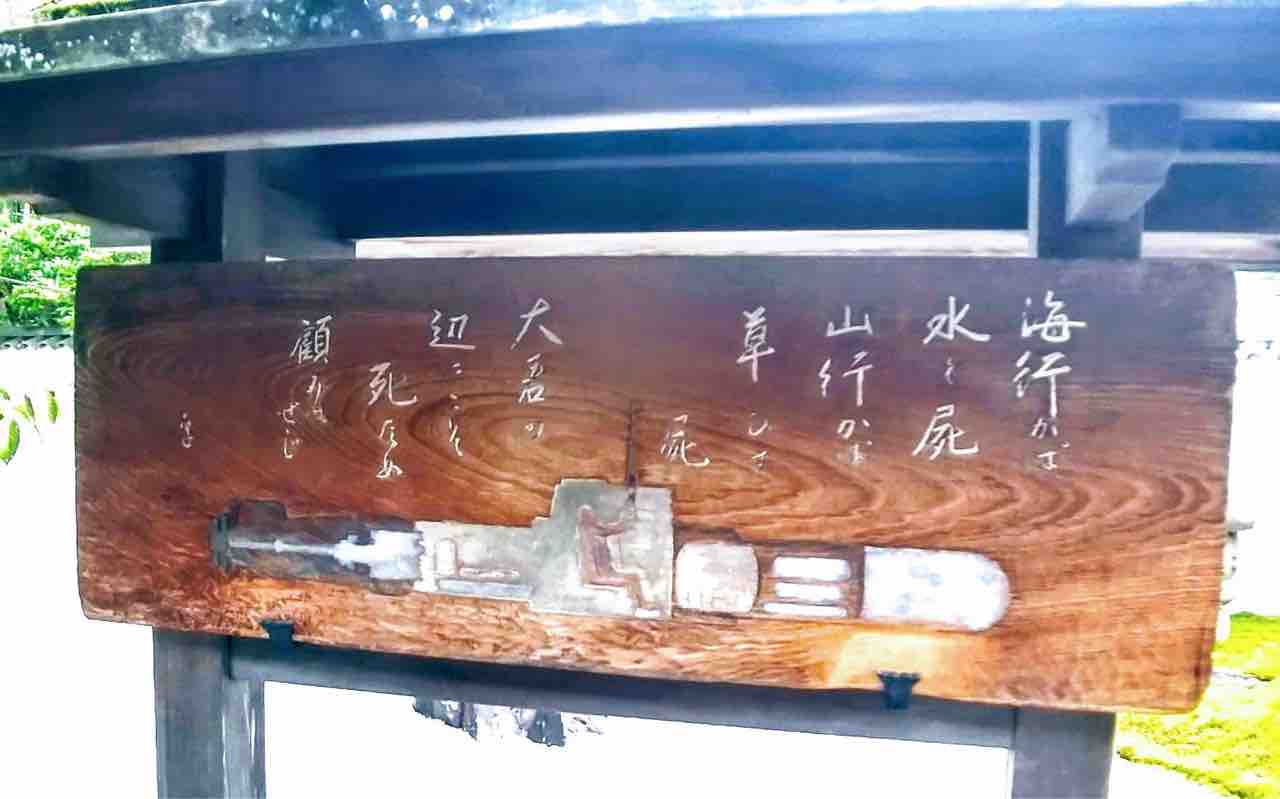 海行かば
水く屍
山行かば
草むす
屍
大君の
辺にこそ
死なめ
顧みは
せじ